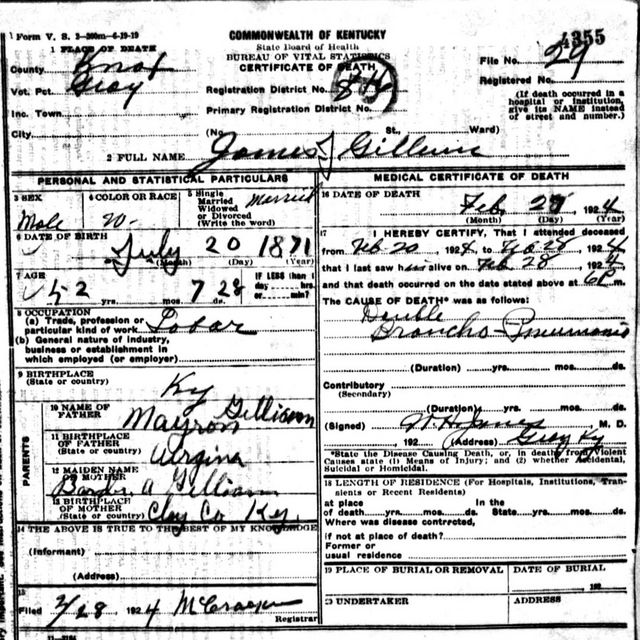 Form V. S. 2-300m-6-19-19
1 PLACE OF DEATH
County Knox
Vot. Pct. Gray
Inc. Town
City
COMMONWEALTH OF KENTUCKY
State Board of Health
BUREAU OF VITAL STATISTICS
CERTIFICATE OF DEATH
Registration District No.
Primary Registration District No.
(No St., Ward)
4355
File No. 29
Registered No.
(If death occurred in a
hospital or institution,
give its NAME instead
of street and number.)
2 FULL NAME James J Gilliam
PERSONAL AND STATISTICAL PARTICULARS
3 SEX
Male
4 COLOR OR RACE
W-
5 Single
Married
Widowed
or Divorced
(Write the word)
Married
6 DATE OF BIRTH
July 20 1871
(Month) (Day) (Year)
7 AGE
52 yrs. 7 mos. 28 ds.
IF LESS than 1
day hrs.
or min.?
8 OCCUPATION
(a) Trade, profession or
particular kind of work Labar
(b) General nature of industry,
business or establishment in
which employed (or employer)
9 BIRTHPLACE
(State or country)
Ky
PARENTS
10 NAME OF
FATHER
Mayron Gilliam
11 BIRTHPLACE
OF FATHER
(State or country)
Virgina
12 MAIDEN NAME
OF MOTHER
A Gilliam
13 BIRTHPLACE
OF MOTHER
(State or country)
Clay Co Ky.
14 THE ABOVE IS TRUE TO THE BEST OF MY KNOWLEDGE
(Informant)
(Address)
15
Filed 2/28 1924 McCracken
Registrar
11-3184
MEDICAL CERTIFICATE OF DEATH
16 DATE OF DEATH
Feb, 1924
(Month) (Day) (Year)
17 I HEREBY CERTIFY, That I attended deceased
from Feb 20, 1924, to Feb 28, 1924,
that I last saw him alive on Feb 28, 1924,
and that death occurred on the date stated above at 6P m.
The CAUSE OF DEATH* was as follows:
Double
Broncho-Pneumonia
(Duration) yrs. mos. ds.
Contributory
(Secondary)
(Duration) yrs. mos. ds.
(Signed) W.H. Jones M. D.
192 (Address) Gray Ky
*State the Disease Causing Death, or, in deaths from Violent
Causes state (1) Means of Injury; and (2) whether Accidental,
Suicidal or Homicidal.
18 LENGTH OF RESIDENCE (For Hospitals, Institutions, Tran-
sients or Recent Residents)
at place In the
of death yrs. mos. ds. State yrs. mos. ds.
Where was disease contrcted,
if not at place of death?
Former or
usual residence
19 PLACE OF BURIAL OR REMOVAL
DATE OF BURIAL
192
20 UNDERTAKER
ADDRESS